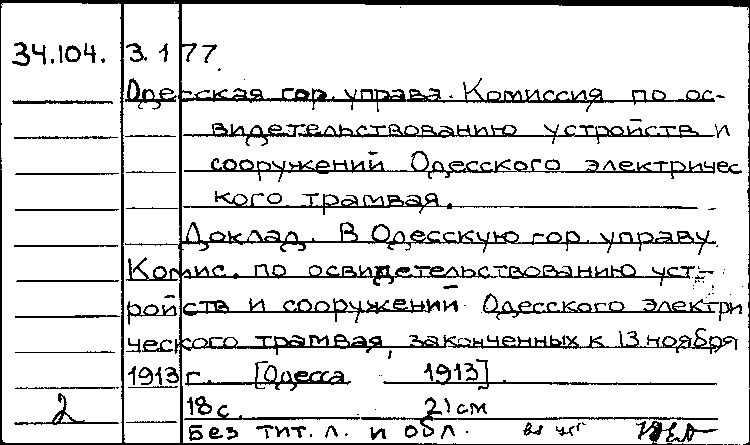 34.104. 3.177.
Одесская гор. управа. Комиссия по ос-
видетельствованию устройств и
сооружений Одесского электричес
кого трамвая.
Доклад. В Одесскую гор. управу
Комис. по освидетельствованию уст-
ройств и сооружений Одесского электри
ческого трамвая, законченных к 13 ноября
1913 г. [Одесса 1913].
2 18 с. 21 см
Без тит. л. и обл.